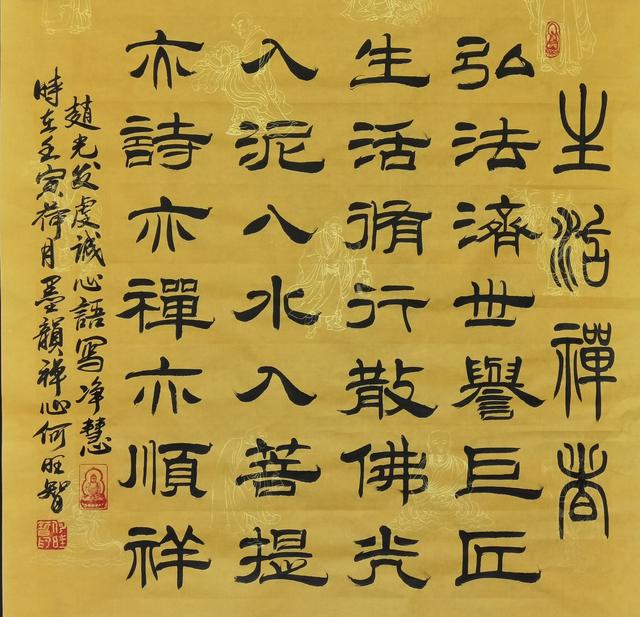 生活禪者
弘法濟世譽巨匠
生活脩行散佛光
入泥入水入菩提
亦詩亦禪亦順祥
趙光發虔誠心語寫净慧
時在壬寅荷月墨韻禅心何旺智